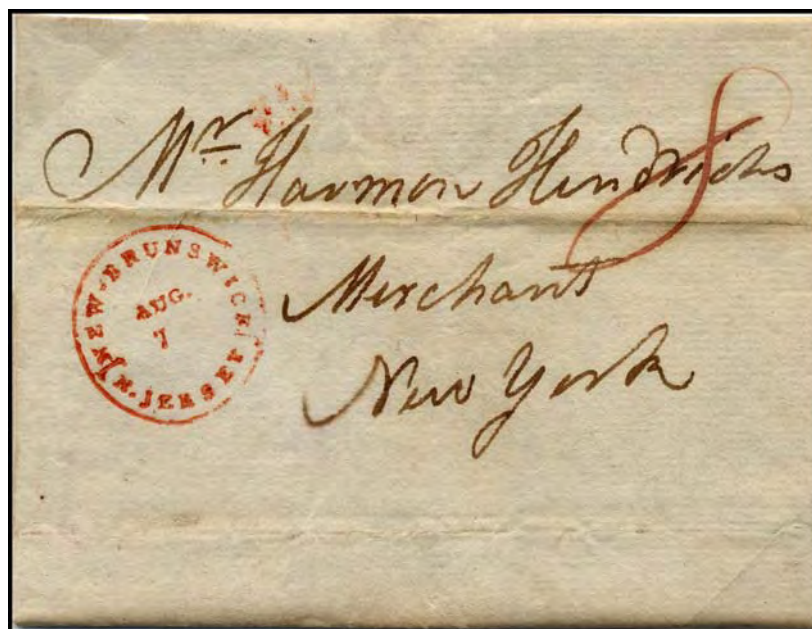 Mr. Harmon Hendricks
8
Merchant
New York
NEW-BRUNSWICK
N. JERSEY
AUG.
7